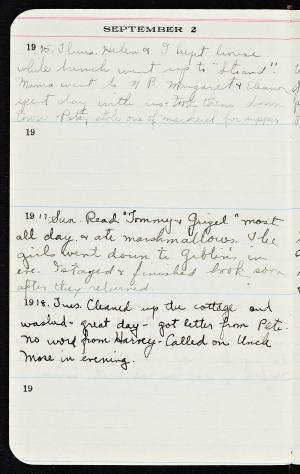 SEPTEMBER 2
19 15. Thurs. Helen & I kept house
while bunch went up to "Strand".
Mama went to N B. Margaret & Eleanor
spent day with us. Took them down
town. Pstg stole one of mackerel for supper
19
19 17. Sun. Read "Tommy & Grizel" most
all day & ate marshmallows. The
girls went down to Giblin's in
eve. I stayed & finished book soon
after they returned
1918. Tues. Cleaned up the cottage and
washed - great day - got letter from Pete.
No word from Harvey - Called on Uncle
Mose in evening.
19